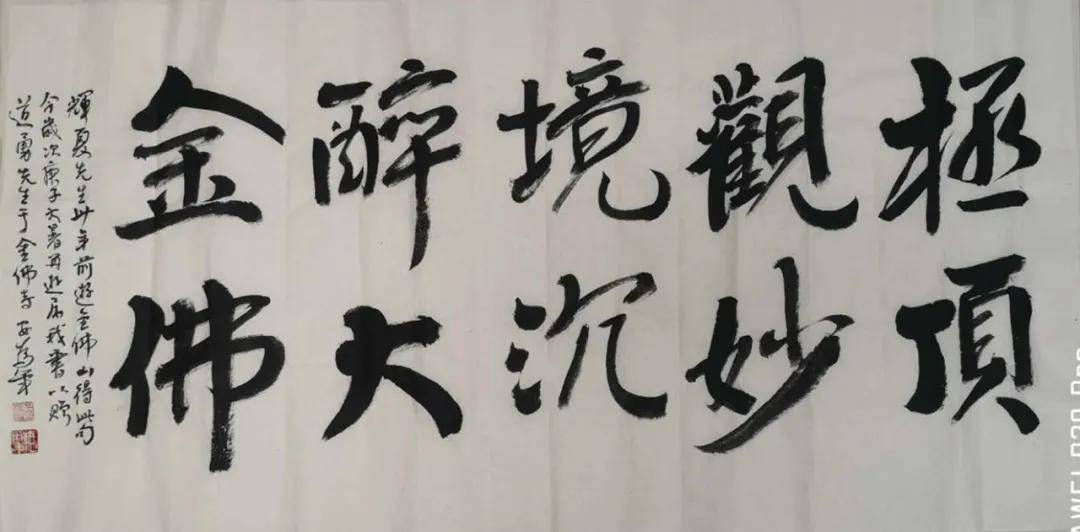 極頂
觀妙
境沉
醉大
金佛
輝夏先生廿年前遊金佛山得此句
今歲次庚子大暑再遊屬我書以贈
道勇先生于金佛寺